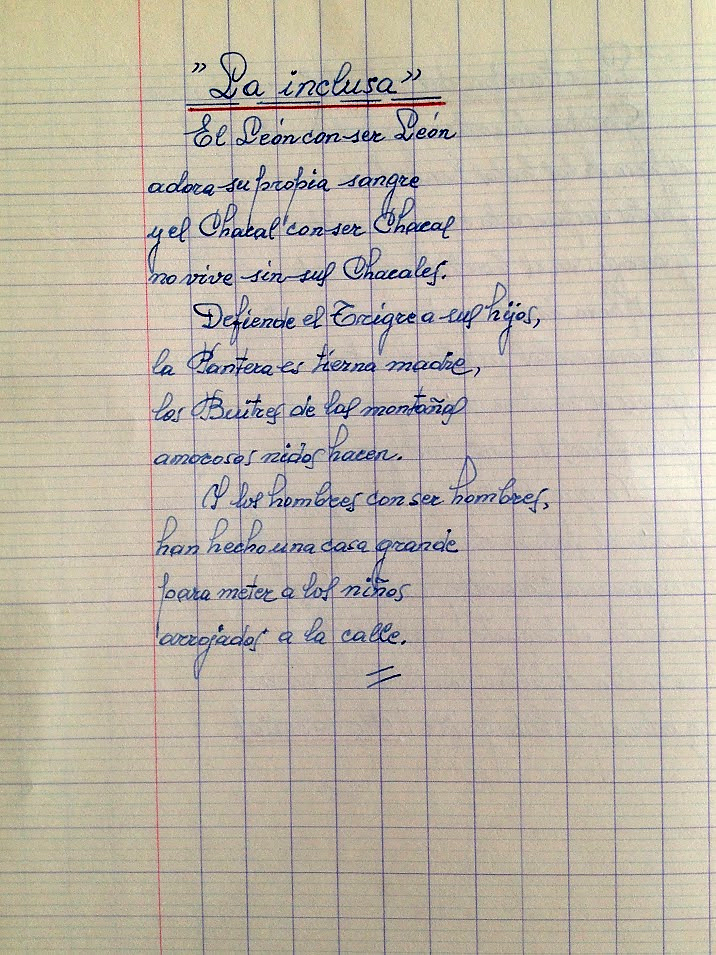 "La inclusa"
El León con ser León
adora su propia sangre
y el Chacal con ser Chacal
no vive sin sus Chacales.
Defiende el Trigre a sus hijos,
la Pantera es tierna madre,
los Buitres de las montañas
amorosos nidos hacen.
Y los hombres con ser hombres,
han hecho una casa grande
para meter a los niños
arrojados a la calle.